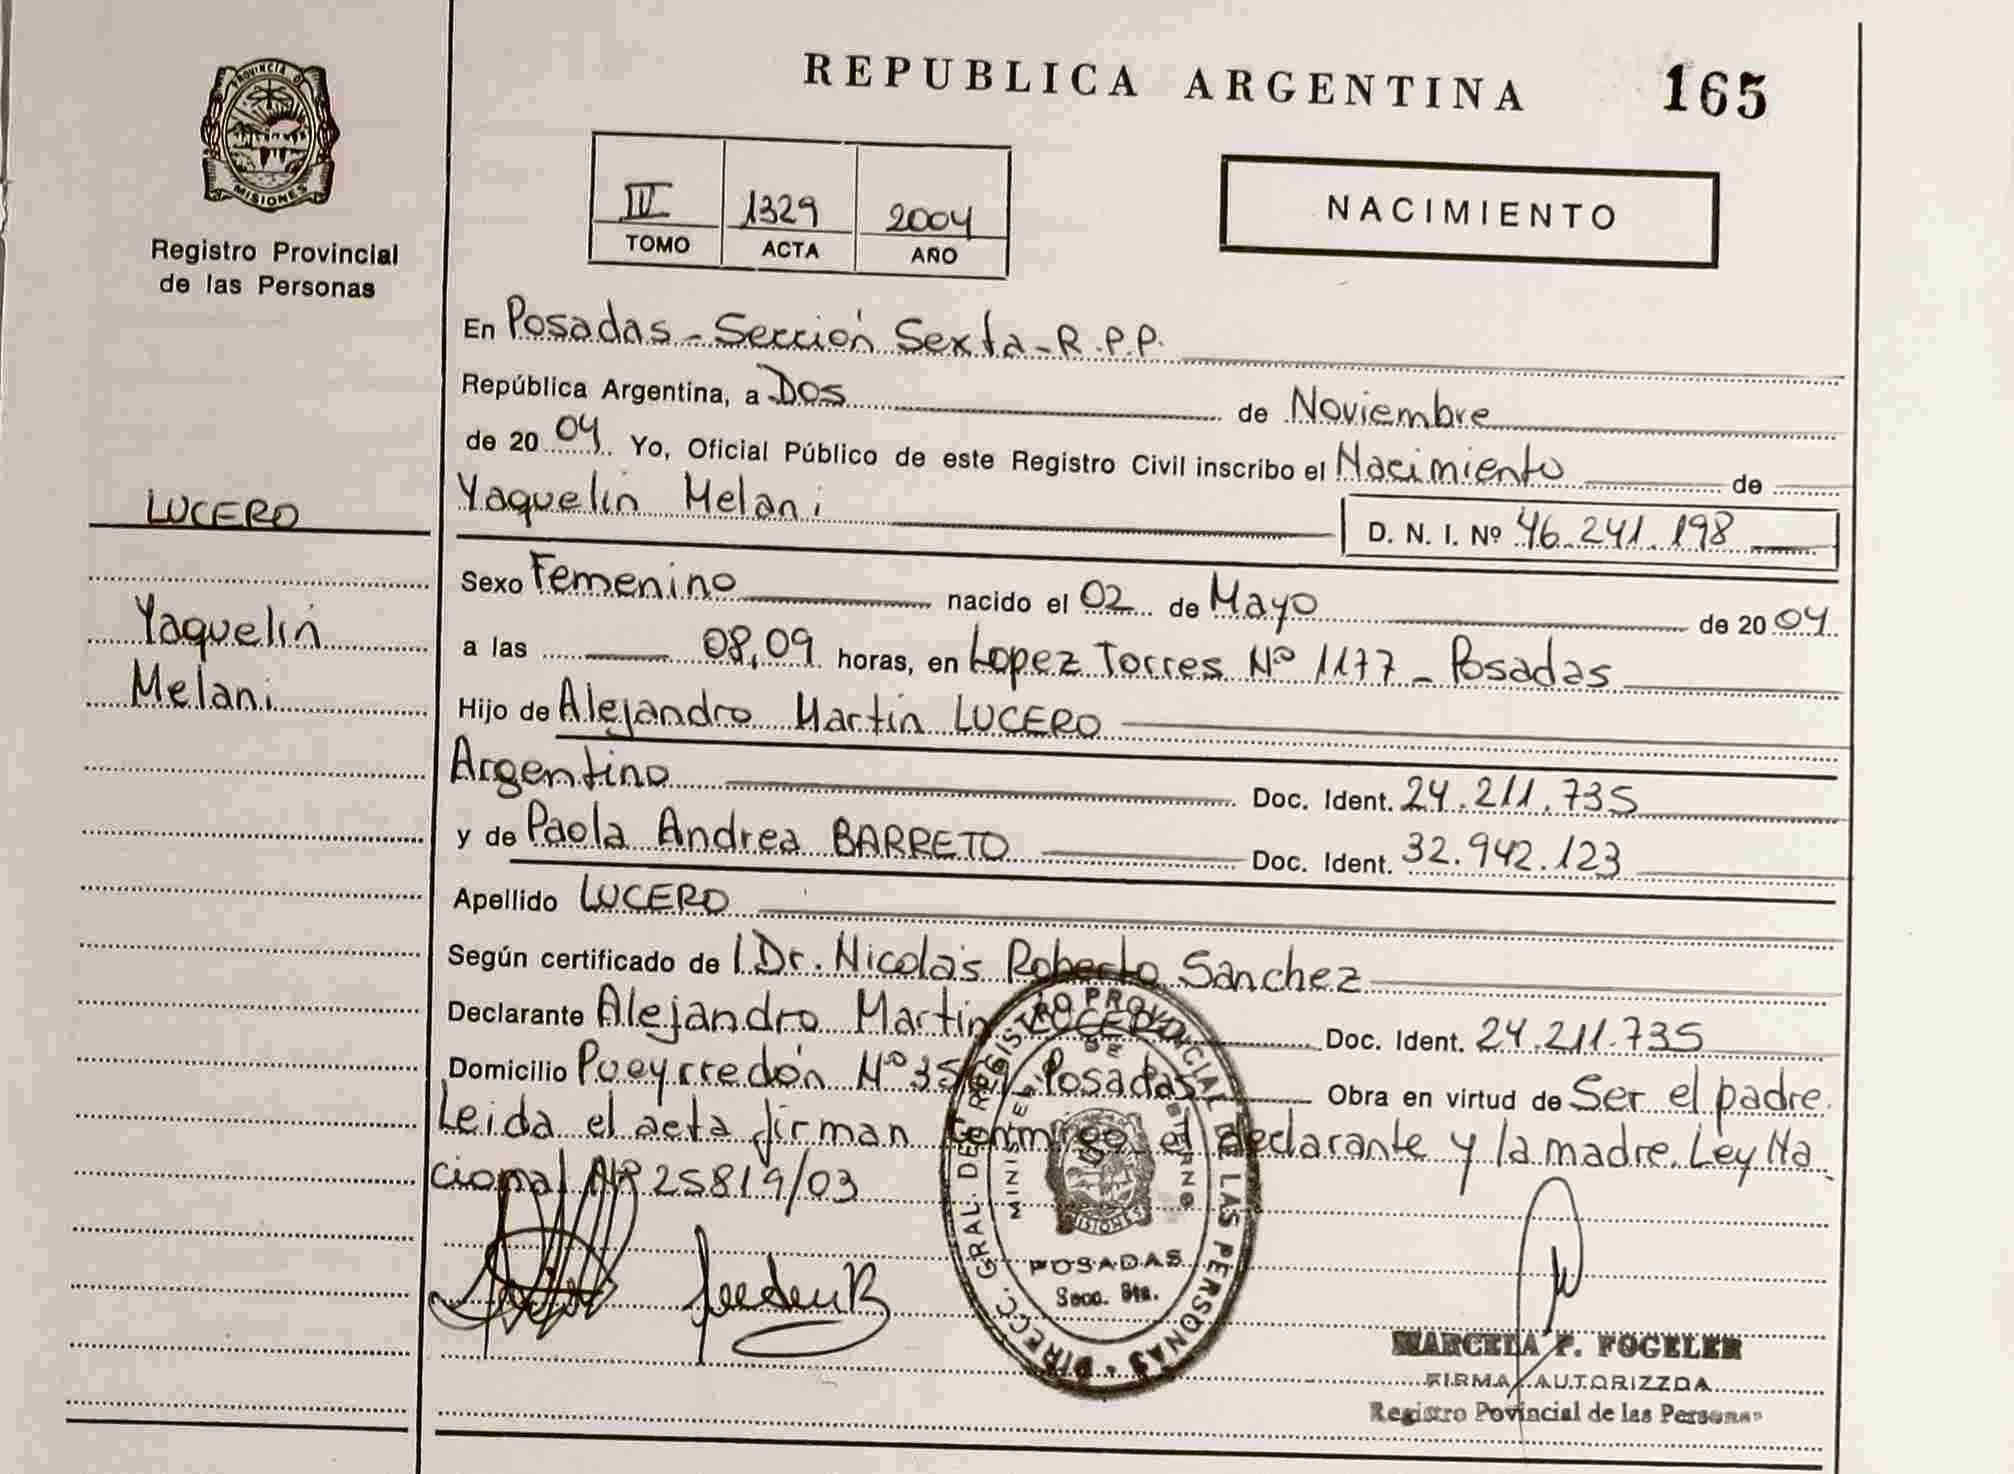 REPUBLICA ARGENTINA 165
PROVINCIA D
MISIONES
Registro Provincial
de las Personas
IV 1329 2004
TOMO ACTA AÑO
NACIMIENTO
En Posadas - Sección Sexta - R.P.P.
República Argentina, a Dos de Noviembre
de 20 04 Yo, Oficial Público de este Registro Civil inscribo el Nacimiento de
Yaquelin Melani D. N. I. Nº 46.241.198
LUCERO
Yaquelin
Melani
Sexo Femenino nacido el 02 de Mayo de 20 04
a las 08,09 horas, en Lopez Torres Nº 1177 - Posadas
Hijo de Alejandro Martín LUCERO
Argentino Doc. Ident. 24.211.735
y de Paola Andrea BARRETO Doc. Ident. 32.942.123
Apellido LUCERO
Según certificado de l Dr. Nicolás Roberto Sanchez
Declarante Alejandro Martin LUCERO Doc. Ident. 24.211.735
Domicilio Pueyrredón Nº 35 Posadas Obra en virtud de Ser el padre.
Leida el acta firman conmigo el declarante y la madre. Ley Na
cional Nº 25819/03
DIRECC. GRAL. DEL REGISTRO PROVINCIAL DE LAS PERSONAS
MINISTERIO DE GOBIERNO
MISIONES
POSADAS
Secc. 6ta.
MARCELA F. FOGELER
FIRMA AUTORIZZDA
Registro Povincial de las Personas